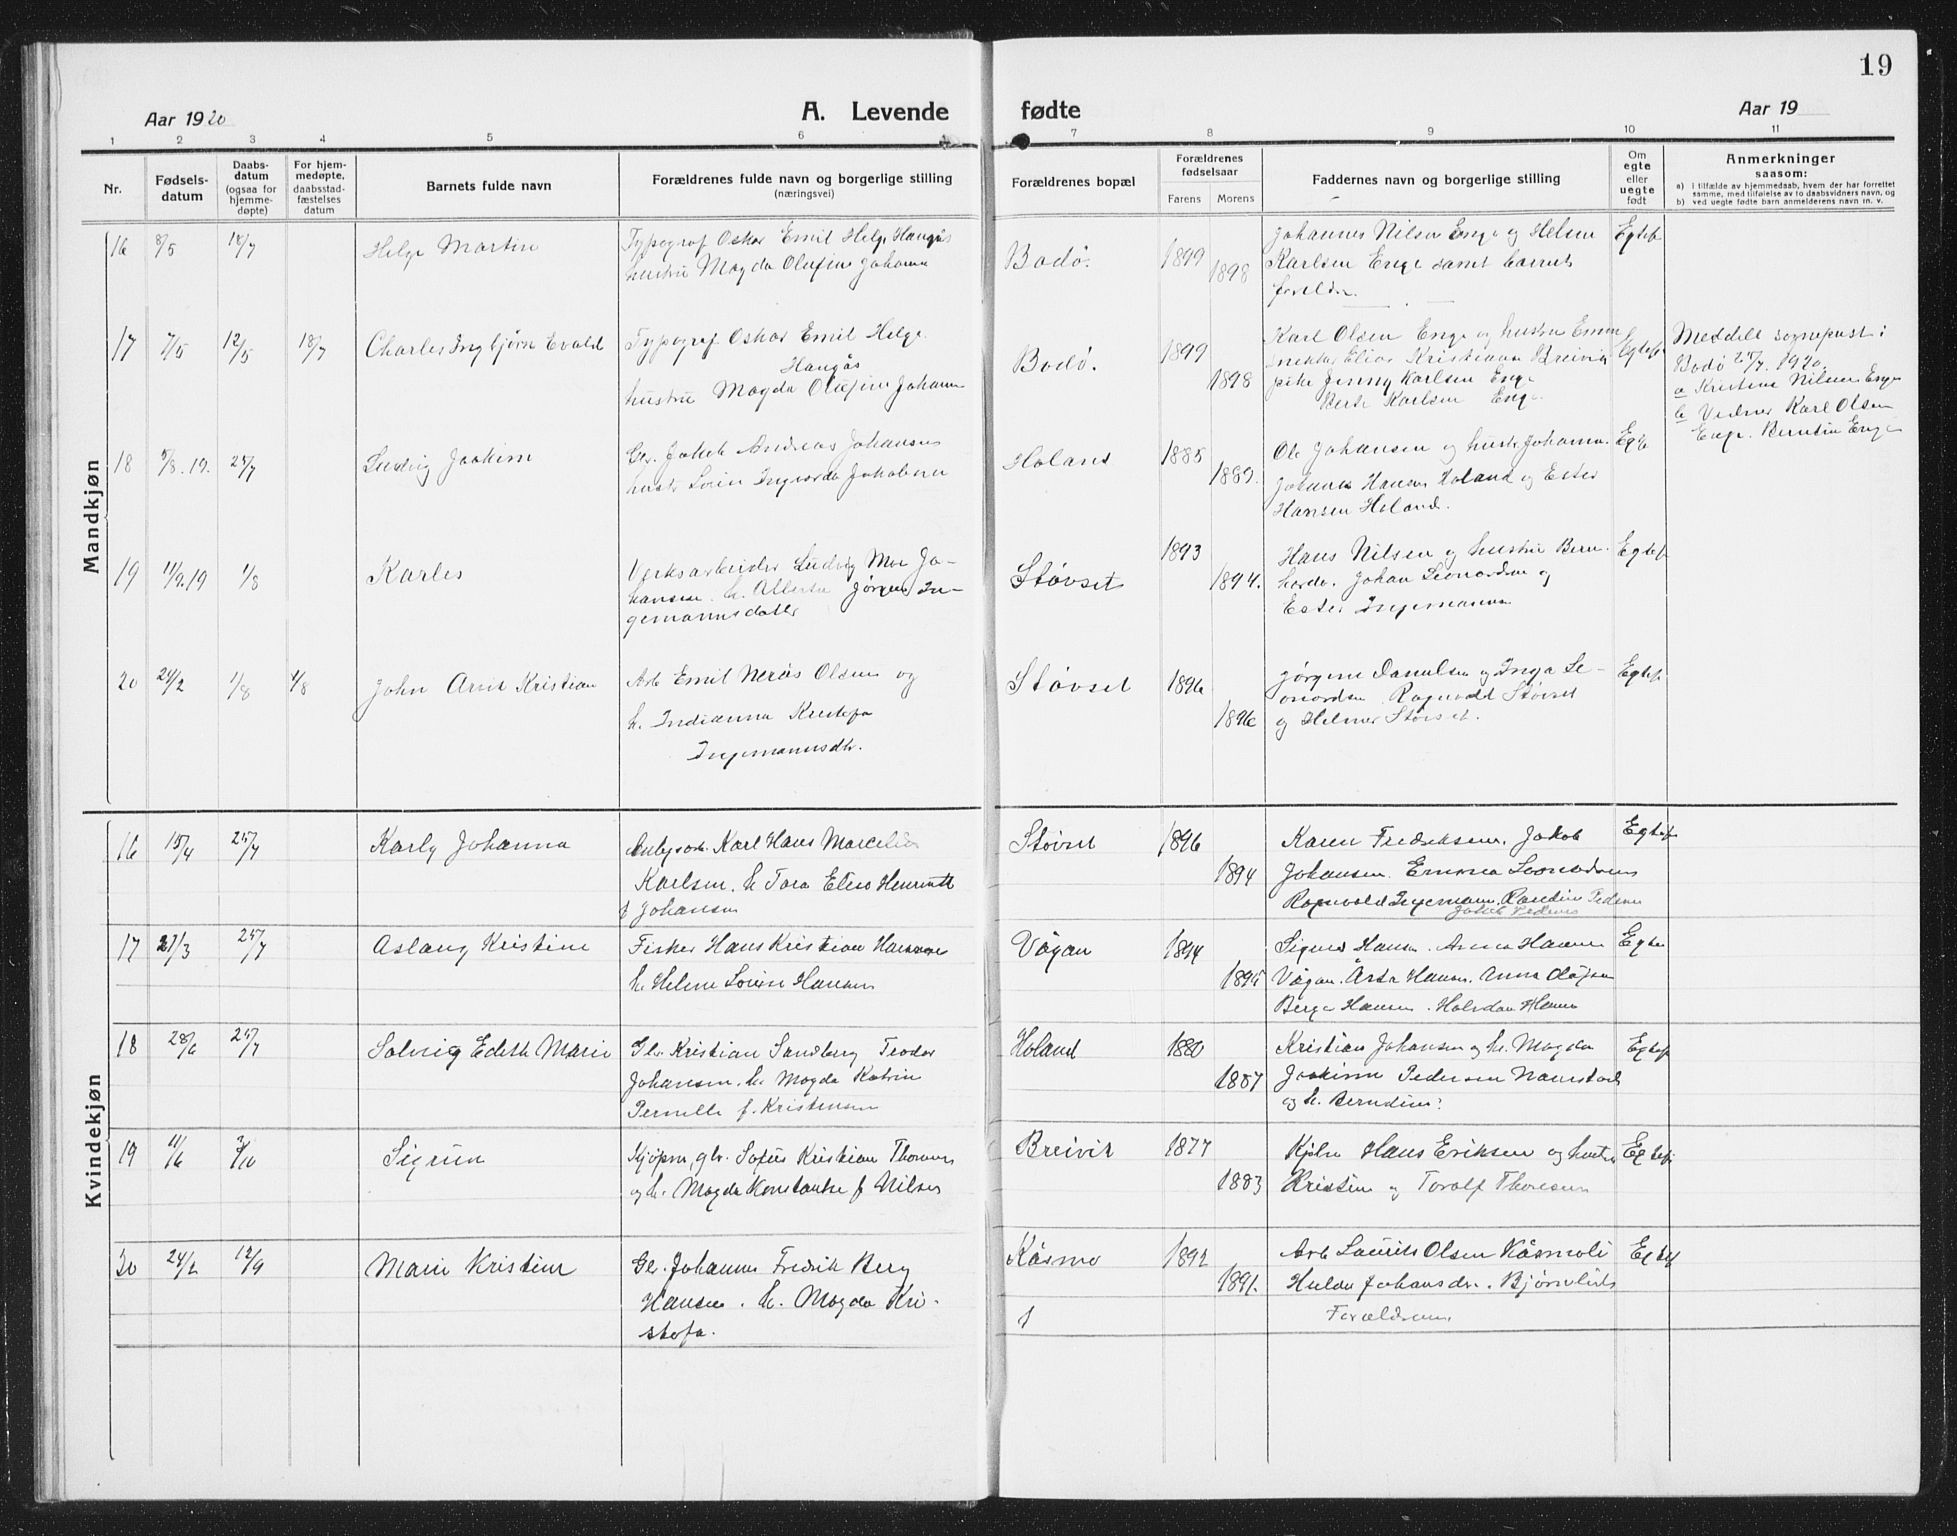 19
Aar 1920
A. Levende fødte
Aar 19
1 2 3 4 5 6 7 8 9 10 11
Nr.
Fødsels-
datum
Daabs-
datum
(ogsaa for
hjemme-
døpte)
For hjem-
medøpte,
daabsstad-
fæstelses
datum
Barnets fulde navn
Forældrenes fulde navn og borgerlige stilling
(næringsvei)
Forældrenes bopæl
Forældrenes
fødselsaar
Farens Morens
Faddernes navn og borgerlige stilling
Om
egte
eller
uegte
født
Anmerkninger
saasom:
a) i tilfælde av hjemmedaab, hvem der har forrettet
samme, med tilføielse av to daabsvidners navn, og
b) ved uegte fødte barn anmelderens navn m. v.
Mandkjøn
16 8/5 18/7 Helge Martin
Typograf Oskar Emil Helge Haugås
hustru Magda Olufine Johanna
Bodø. 1899 1898
Johannes Nilsen Enge og Helene
Karlsen Enge samt barnets
foreldre.
Egtef
17 7/5 12/5 18/7 Charles Ingbjørn Evald
Typograf Oskar Emil Helge
Haugås
hustru Magda Olufine Johanna
Bodø. 1899 1898
Karl Olsen Enge og hustru
Elias Kristian Breivik
pike Jenny Karlsen Enge
Karlsen Enge.
Egtef.
Meddelt sogneprest i
Bodø 24/7. 1920.
a Kristine Nilsen Enge
b Vidner Karl Olsen
Enge. Berntin Enge
18 5/8.19. 25/7 Ludvig Joakim
Gbr. Jakob Andreas Johansen
hustr Lovise Ingvarda Jakobsen
Holand 1885 1889.
Ole Johansen og hustr Johanna.
Hansen Holand og Ester
Hansen Holand.
Egte
19 11/9.19 1/8 Karles
Verksarbeider Ludvig Moe Jo-
hansen. h. Alberta Jørgine In-
gemannsdatter
Støvset 1893 1894.
Hans Nilsen og hustru Bern-
harda. Johan Leonardsen og
Ester Ingemannsen
Egtef
20 24/2 1/8 1/8 John Arvit Kristian
Arb Emil Nerås Olsen og
h. Indianna Kristofa
Ingemannsdtr.
Støvset 1896 1896
Jørgine Danielsen og Inga Le-
onardsen Ragnvald Støvset
og Helmer Støvset.
Egtef.
Kvindekjøn
16 15/4 25/7 Karly Johanna
Karl Hans Marcelius
Karlsen. h Tora Elise Henriette
f Johansen
Støvset 1896 1894
Karen Fredriksen. Jakob
Johansen. Emma Leonardsen
Ragnvald Ingemann. Randine Pedersen
Jakob Pedersen
Egtef
17 27/3 25/7 Aslaug Kristine
Fisker Hans Kristian Hansen
h. Helene Lovise Hansen
Vågan 1894 1895
Signe Hansen. Anna Hansen
Vågan. Åsta Hansen. Anna Olufsen
Berge Hansen. Halvdan Hansen
Egte
18 28/6 25/7 Solveig Edith Marie
Gbr. Kristian Sandberg Teodor
Johansen. h. Magda Katrine
Pernille f. Kristensen
Holand 1880 1887
Kristian Johansen og h. Magda
Joakim Pedersen Naurstad
og h. Berndine.
Egtef
19 11/6 3/10 Sigrun
Kjøpm, gbr. Sofus Kristian Thoresen
og h. Magda Konstanse f Nilsen
Breivik 1877 1883
Hans Eriksen og hustru
Kristine og Toralf Thoresen
Egtef.
20 24/2 12/9 Marie Kristine
Gbr. Johannes Fredrik Berg
Hansen. h. Magda Kri-
stofa.
Kåsmo 1892 1891.
Arb Laurits Olsen Kåsmoli
Hulda Johansdr.. Bjørnlid
Forældrene
Egtef